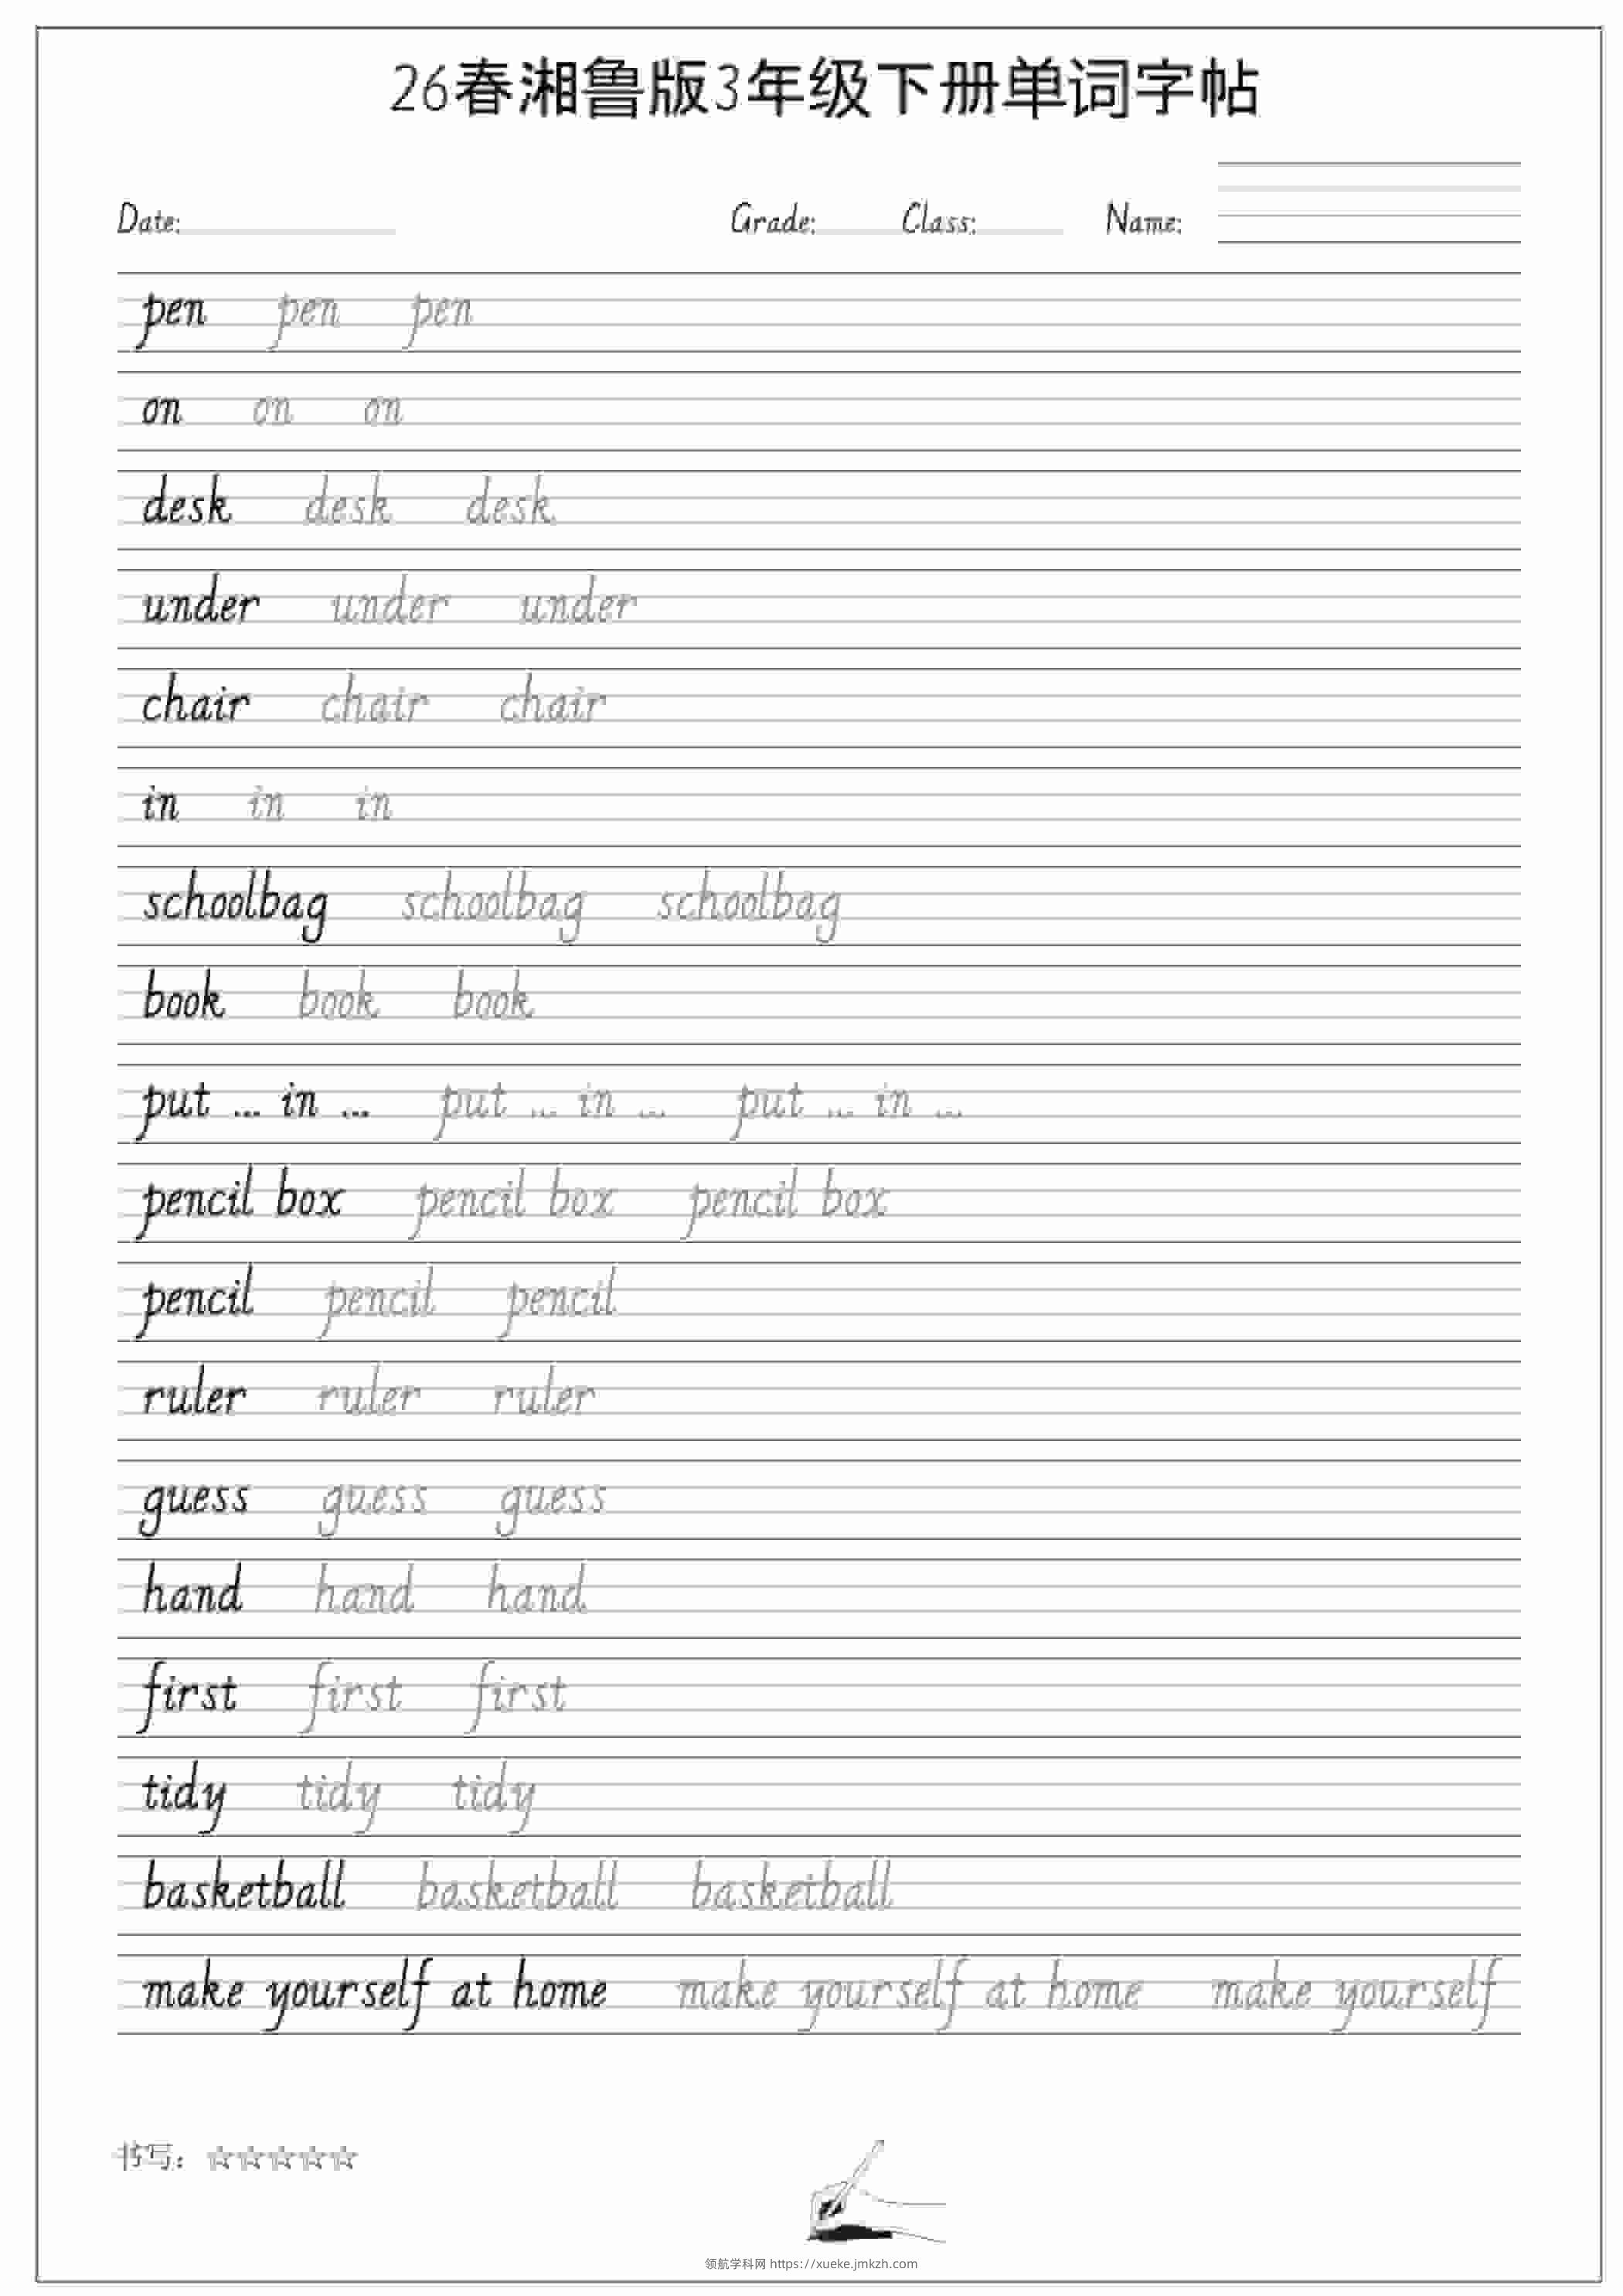 26春湘鲁版3年级下册单词字帖
Date: Grade: Class: Name:
pen pen pen
on on on
desk desk desk
under under under
chair chair chair
in in in
schoolbag schoolbag schoolbag
book book book
put ... in ... put ... in ... put ... in ...
pencil box pencil box pencil box
pencil pencil pencil
ruler ruler ruler
guess guess guess
hand hand hand
first first first
tidy tidy tidy
basketball basketball basketball
make yourself at home make yourself at home make yourself
书写：☆☆☆☆☆
领航学科网 https://xueke.jmkzh.com